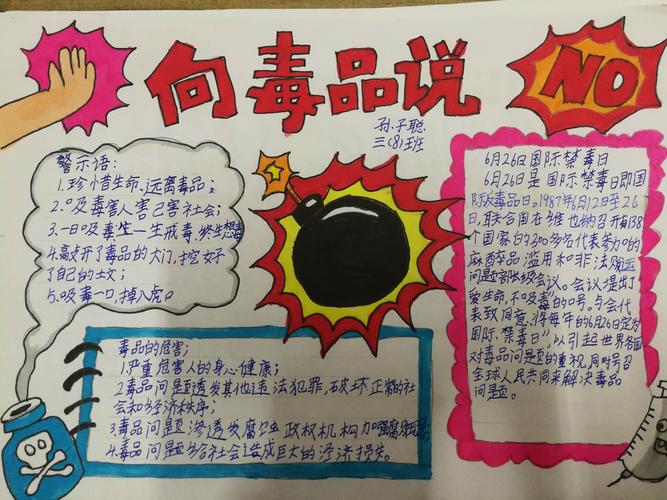 向毒品说
NO
孙子聪
三(8)班
警示语:
1.珍惜生命、远离毒品;
2.吸毒害人害己害社会;
3.一日吸毒一生戒毒,终生想毒
4.敲开了毒品的大门,挖好
了自己的土文;
5.吸毒一口,掉入虎口
毒品的危害:
1.严重危害人的身心健康;
2毒品问题诱发其他违法犯罪,破坏正常的社
会和经济秩序;
3毒品问题渗透发腐蚀政权机构加
4.毒品问题给社会造成巨大的经济损失。
6月26日国际禁毒日
6月26日是国际禁毒日即国
际反毒品日。1987年6月12日至26
日,联合国在维也纳召开有138
个国家的3000多名代表参加的
麻醉品滥用和非法贩运
问题部长级会议。会议提出了
爱生命,不吸毒的口号。与会代
表一致同意,将每年的6月26日定为
国际禁毒日",以引起世界各国
对毒品问题的重视,同时号召
全球人民共同来解决毒品
问题。